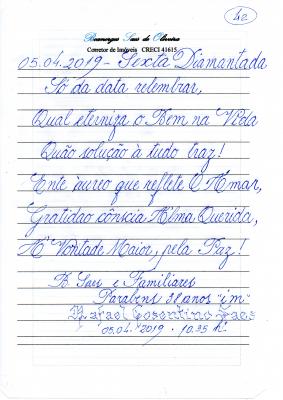 42
Boanerges Saes de Oliveira
Corretor de Imóveis CRECI 41615
05.04.2019 - Sexta Diamantada
Só da data relembrar,
Qual eterniza o Bem na Vida
Quão solução à tudo traz!
Ente àureo que reflete O Amar,
Gratidão cônscia A'lma Querida,
A' Vontade Maior, pela Paz!
B. Saes e Familiares
Parabens 38 anos "im"
Rafael Cosentino Saes
05.04.2019 . 10.35 h.